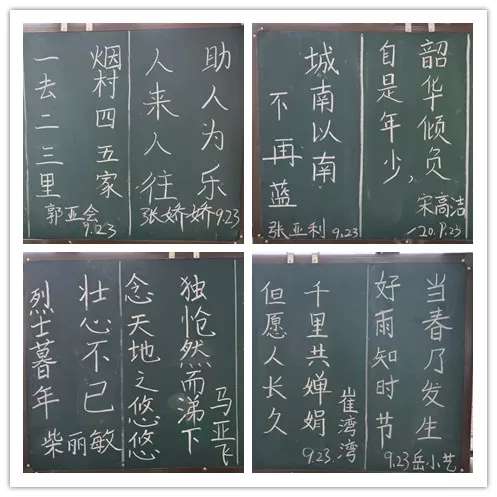 一去二三里
烟村四五家
郭亚会
9.23
人来人往
助人为乐
张娇娇9.23
城南以南
不再蓝
张亚利 9.23
自是年少,
韶华倾负
宋高洁
20.9.23
烈士暮年
壮心不已
柴丽敏
念天地之悠悠
独怆然而涕下
马亚飞
但愿人长久
千里共婵娟
崔湾湾
9.23
好雨知时节
当春乃发生
9.23岳小艺